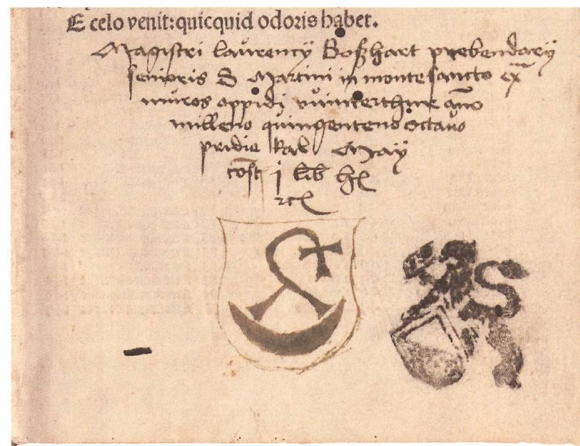 E celo venit: quicquid odoris habet.
Magistri laurency Boſzhart prebendary
senioris S Martini in monte sancto ex̄
muros oppidi vuinterthur āno
milleno quingenteno octauo
pridie kal May
cōst j lib hł